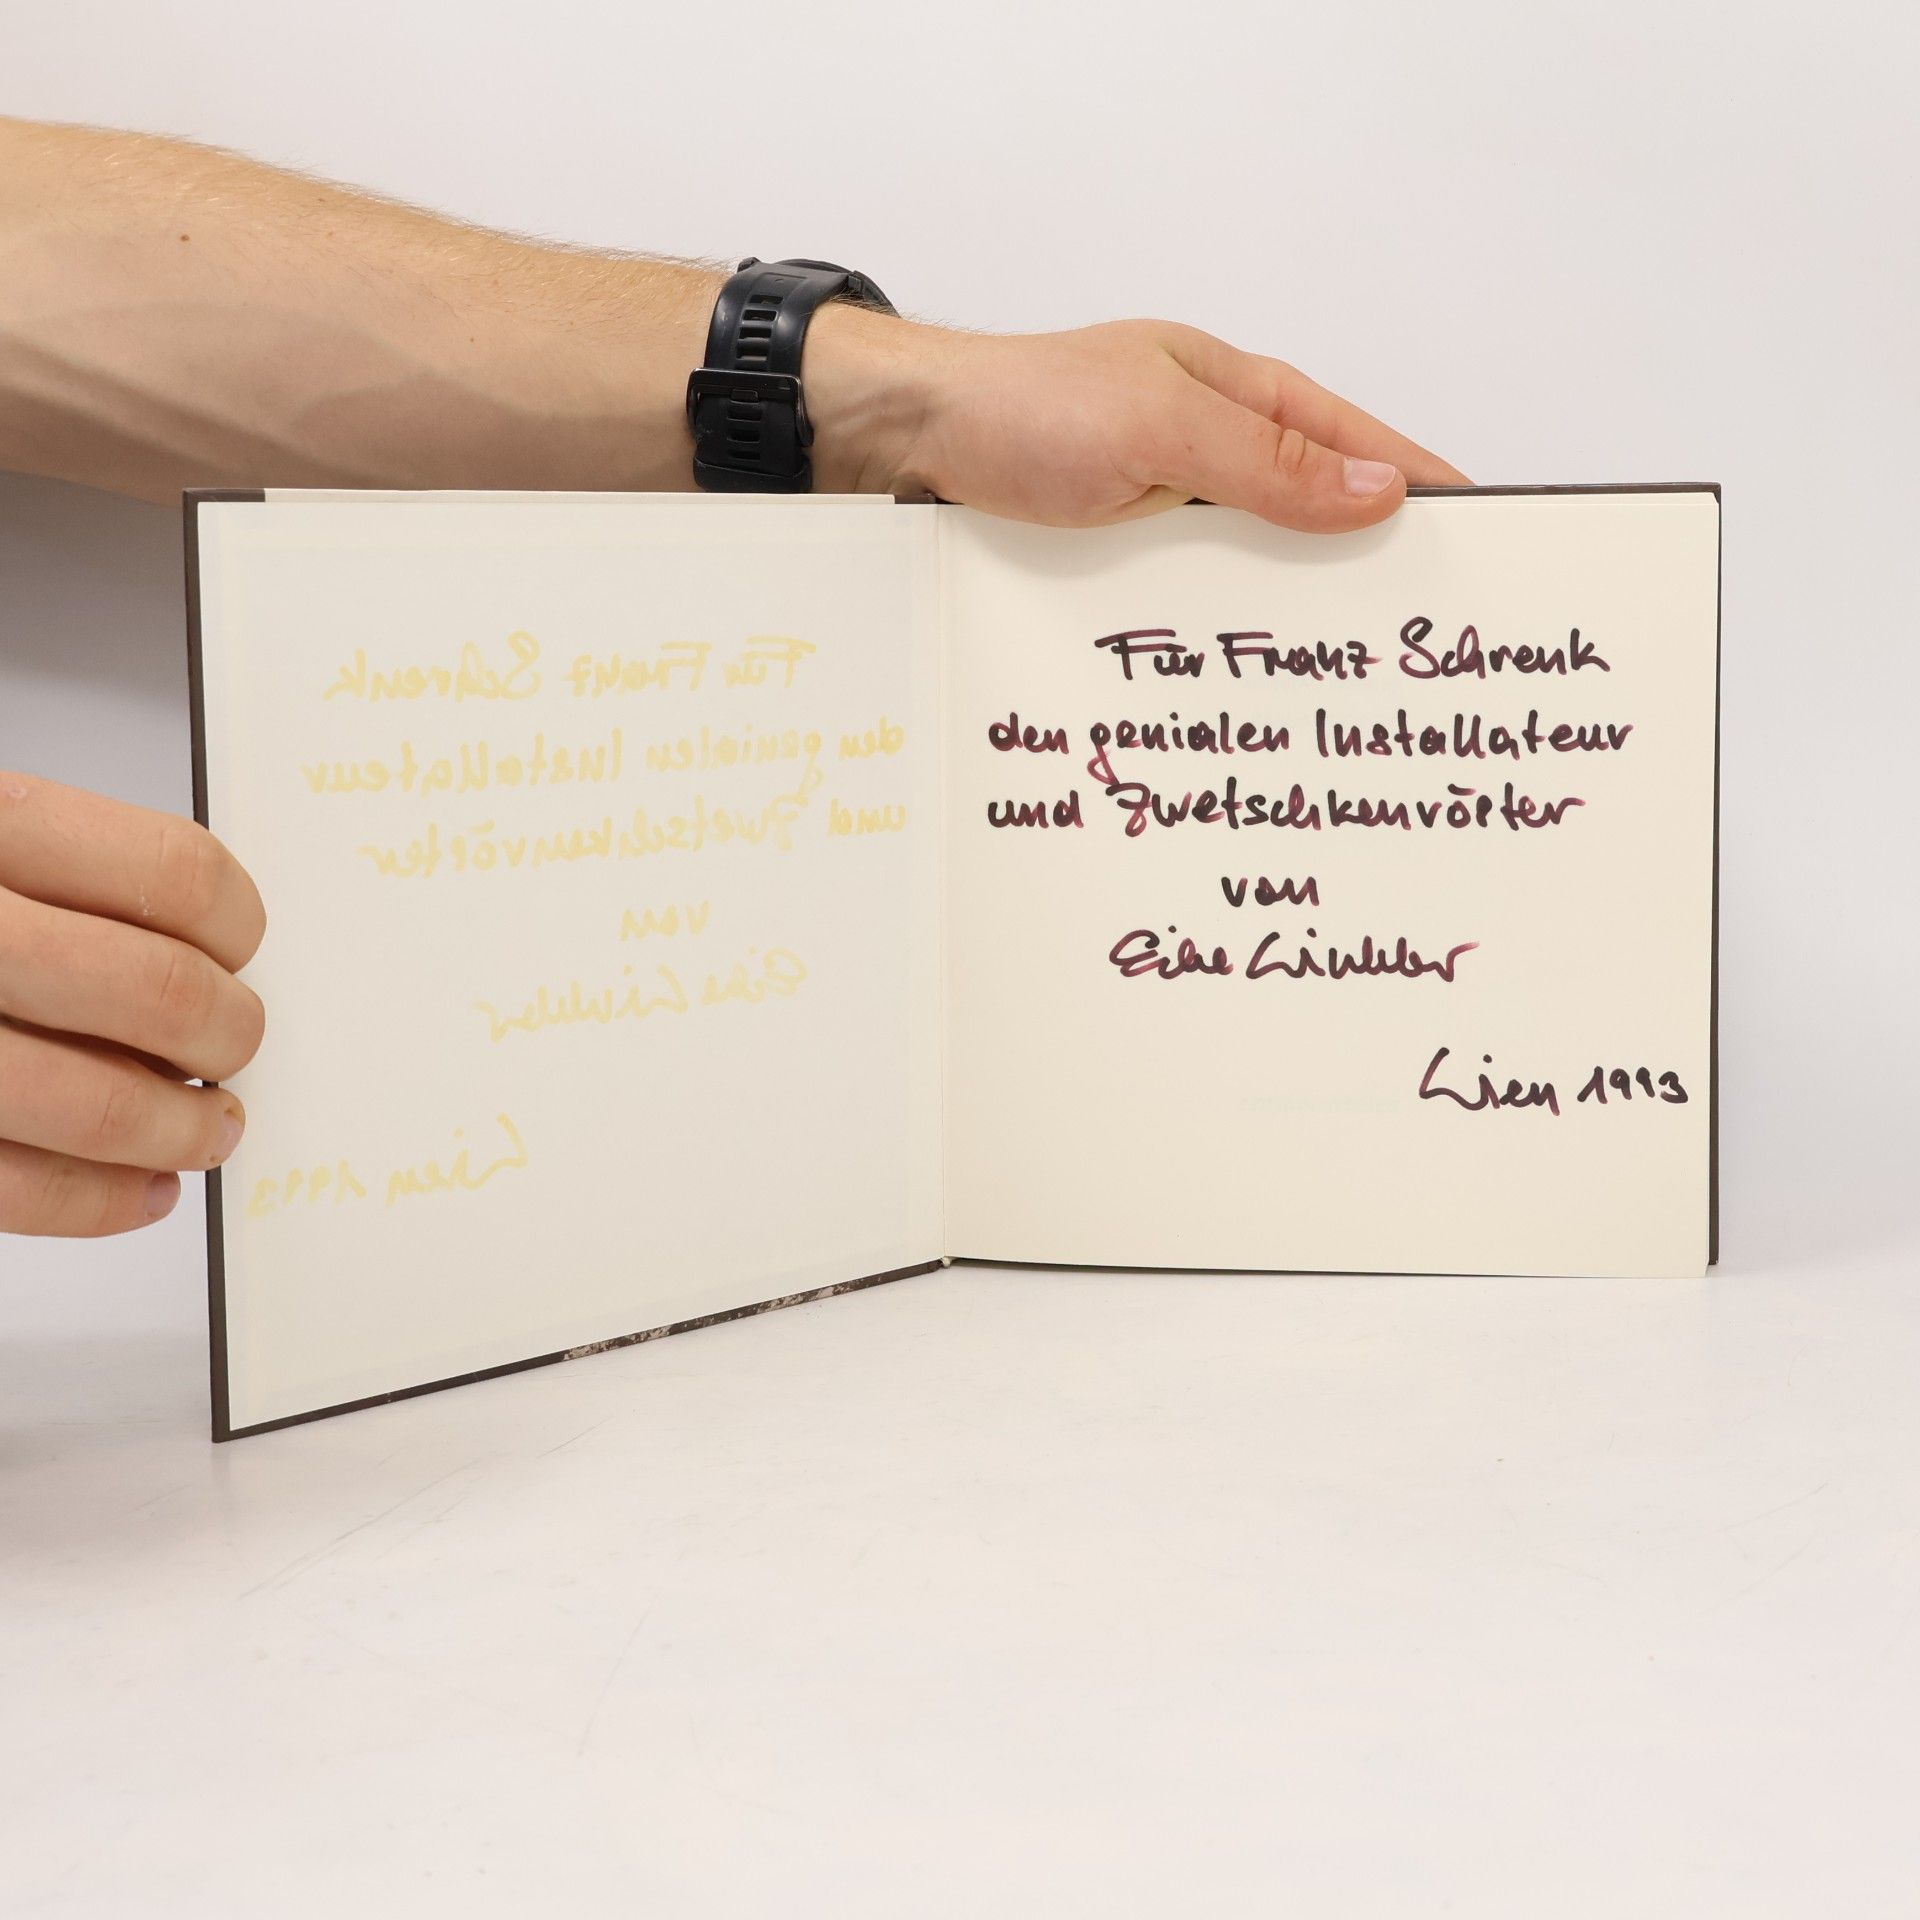 Für Franz Schrenk
den genialen Installateur
und Zwetschkenröster
von
Eike Winkler
Wien 1993